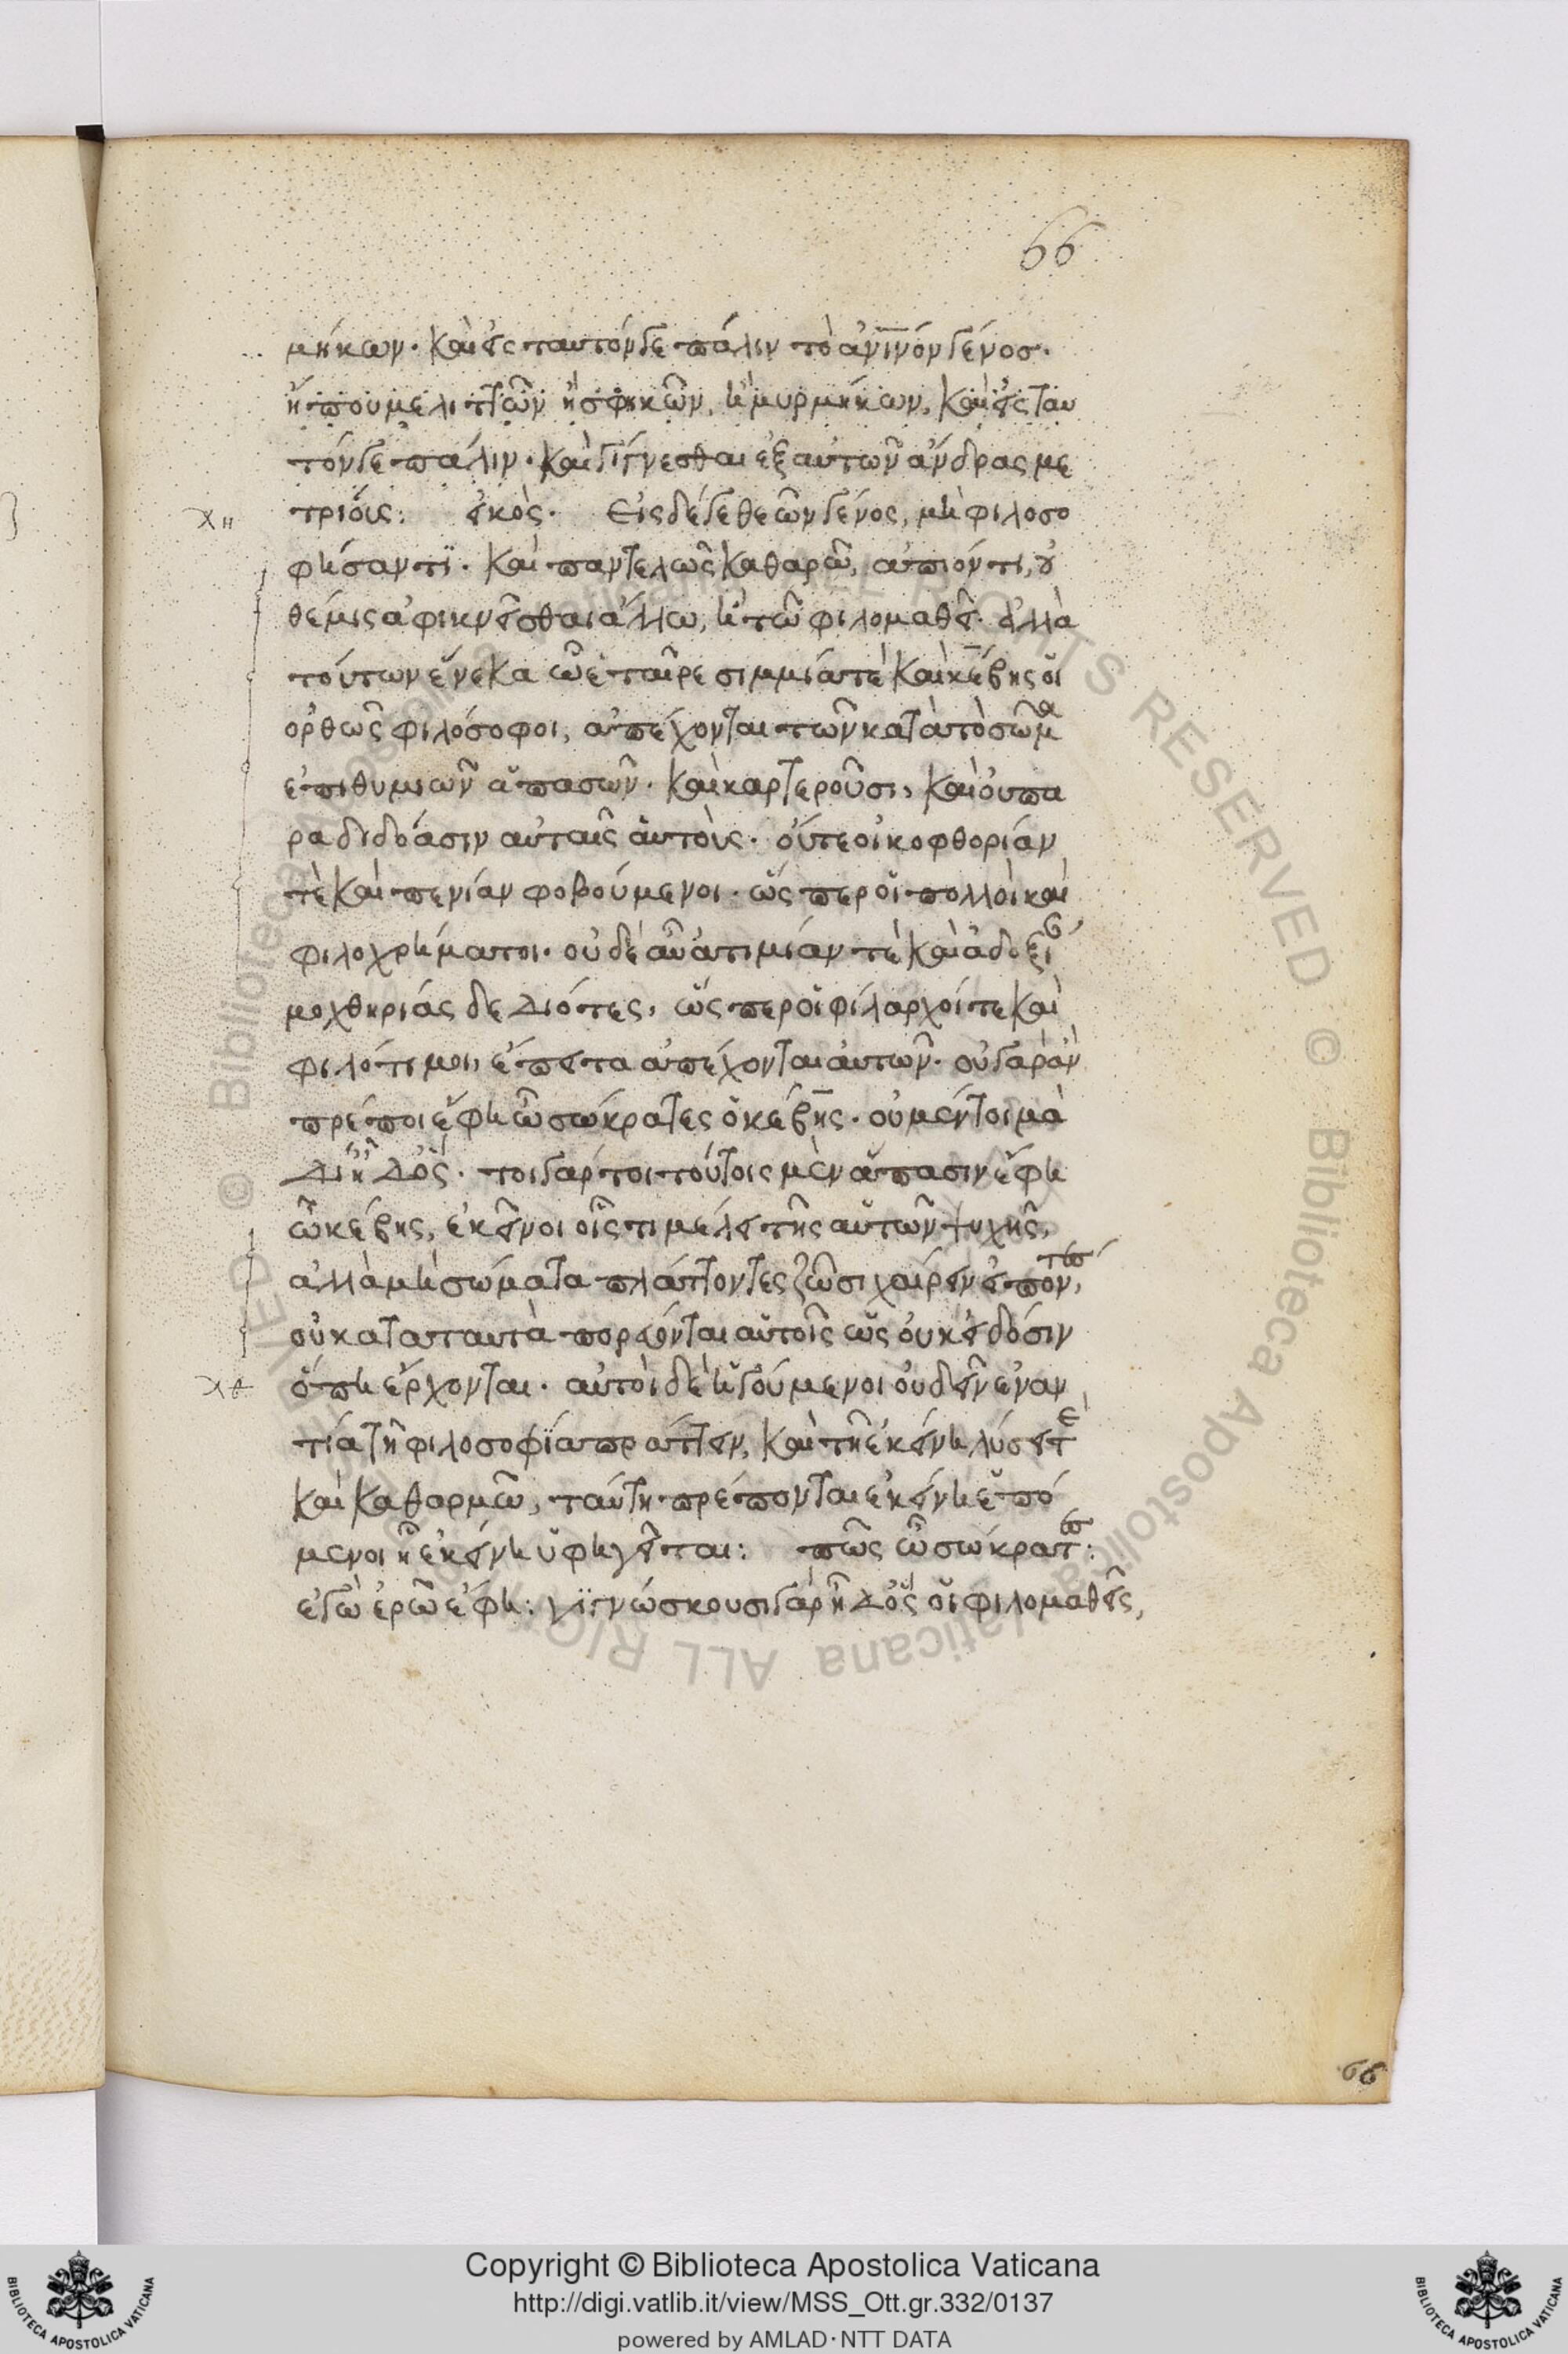 66
μήκων. καὶ εἰς ταυτόν γε πάλιν τὸ ἀνινὸν γένος.
ἤ που μελιττῶν ἢ σφηκῶν, ἢ μυρμήκων, καὶ εἰς ταυ
τόν γε πάλιν. καὶ γίγνεσθαι ἐξ αὐτῶν ἄνδρας με
τρίους: εἰκὸς. Εἰς δέ γε θεῶν γένος, μὴ φιλοσο
χη
φήσαντϊ. καὶ παντελῶς καθαρῶ, ἀπιόντι, οὐ
θέμις ἀφικνεῖσθαι ἄλλω, ἢ τῶ φιλομαθεῖ. ἀλλὰ
τούτων ἕνεκα ὦ ἑταῖρε σιμμία τὲ καὶ κέβης οἱ
ὀρθῶς φιλόσοφοι, ἀπέχονται τῶν κατὰ τὸ σῶμα
ἐπιθυμιῶν ἁπασῶν. καὶ καρτεροῦσι, καὶ οὐ πα
ραδιδόασιν αὐταῖς ἁυτοὺς. οὔτε οἰκοφθορίαν
τὲ καὶ πενίαν φοβούμενοι. ὥσπερ οἱ πολλοὶ καὶ
φιλοχρήματοι. οὐδὲ αὖ ἀτιμίαν τὲ καὶ ἀδοξί
μοχθηρίας δεδιότες, ὥσπερ οἱ φίλαρχοί τε καὶ
φιλότιμοι, ἔπειτα ἀπέχονται ἀυτῶν. οὐ γὰρ ἂν
πρέποι ἔφη ὦ σώκρατες ὁ κέβης. οὐ μέντοι μὰ
Δι ἦ δ ὅς. τοιγάρτοι τούτοις μὲν ἅπασιν ἔφη
ὦ κέβης, ἐκεῖνοι οἷς τι μέλει τῆς αὑτῶν ψυχῆς,
ἀλλὰ μὴ σώματα πλάττοντες ζῶσι χαίρειν εἰπόντες,
οὐ κατα ταυτὰ πορεύονται αὐτοῖς ὡς οὐκ εἰδόσιν
χθ
ὅπη ἔρχονται. αὐτοὶ δὲ ἡγούμενοι οὐ δεῖν ἐναν
τία τῆ φιλοσοφία πράττειν, καὶ τῆ ἐκείνη λύσει τὲ
καὶ καθαρμῶ, ταύτη πρέπονται ἐκείνη ἑπό
μενοι ἧ ἐκείνη ὑφηγεῖται: πῶς ὦ σώκρατες:
ἐγὼ ἐρῶ ἔφη: γϊγνώσκουσι γὰρ ἦ δ ὅς οἱ φιλομαθεῖς,
66
Copyright © Biblioteca Apostolica Vaticana
http://digi.vatlib.it/view/MSS_Ott.gr.332/0137
powered by AMLAD·NTT DATA